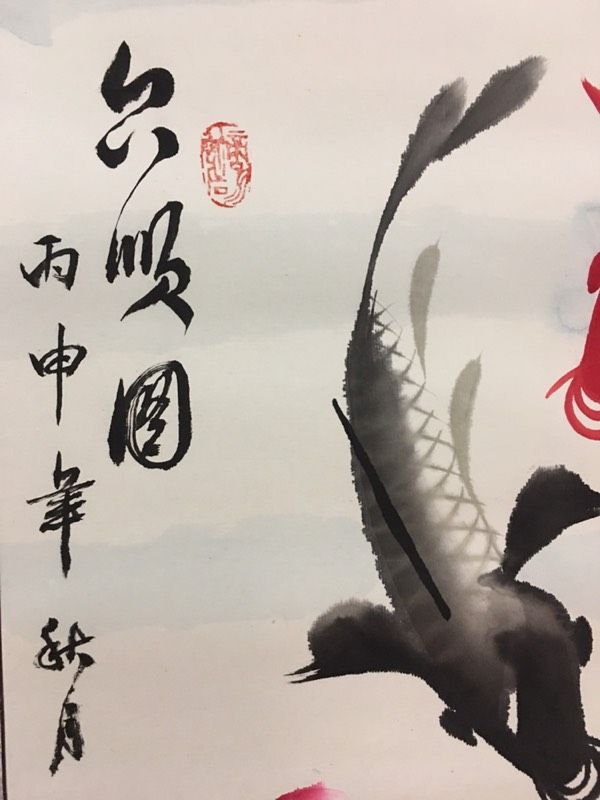 六順圖
丙申年秋月